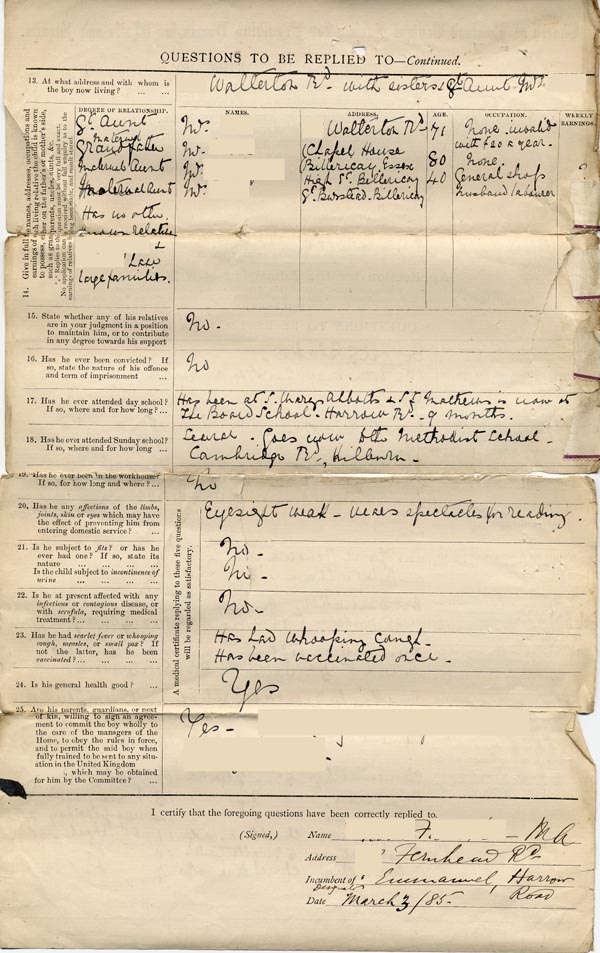 QUESTIONS TO BE REPLIED TO—Continued.
13. At what address and with whom is
the boy now living? ... ...
Walterton Rd. with sisters & Gt. Aunt Mrs
14. Give in full the names, addresses, occupations and
earnings of each living relative the child is known
to possess, either on the father's or mother's side,
such as grandparents, uncles, aunts, &c.
*** Replies to this question must be very full and exact.
No application can be received without full enquiry as to the
earnings of relatives having been made, and result stated.
DEGREE OF RELATIONSHIP. NAMES. ADDRESS. AGE. OCCUPATION. WEEKLY EARNINGS.
Gt. Aunt Mrs. Walterton Rd. 71 None. invalid
with £20 a year.
Maternal
Grandfather Mr. Chapel House
Billericay Essex 80 None.
Maternal Aunt Mrs. High St. Billericay 40 General shop
Maternal Aunt Mrs. Gt. Burstead. Billericay husband labourer
Has no other
known relative
&
large families.
15. State whether any of his relatives
are in your judgment in a position
to maintain him, or to contribute
in any degree towards his support
No.
16. Has he ever been convicted? If
so, state the nature of his offence
and term of imprisonment ...
No
17. Has he ever attended day school?
If so, where and for how long? ...
Has been at S. Mary Abbotts & St Mathews is now at
The Board School. Harrow Rd. 9 months.
18. Has he ever attended Sunday school?
If so, where and for how long ...
Goes now to the Methodist School.
Cambridge Rd, Kilburn.
19. Has he ever been in the workhouse?
If so, for how long and where? ...
No
A medical certificate replying to these five questions
will be regarded as satisfactory.
20. Has he any affections of the limbs,
joints, skin or eyes which may have
the effect of preventing him from
entering domestic service? ...
Eyesight weak – wears spectacles for reading.
21. Is he subject to fits? or has he
ever had one? If so, state its
nature ... ... ... ...
Is the child subject to incontinence of
urine ... ... ... ...
No.
No.
22. Is he at present affected with any
infectious or contagious disease, or
with scrofula, requiring medical
treatment? ... ... ... ...
No.
23. Has he had scarlet fever or whooping
cough, measles, or small pox? If
not the latter, has he been
vaccinated? ... ... ... ...
Has had whooping cough.
Has been vaccinated once.
24. Is his general health good? ...
Yes
25. Are his parents, guardians, or next
of kin, willing to sign an agree-
ment to commit the boy wholly to
the care of the managers of the
Home, to obey the rules in force,
and to permit the said boy when
fully trained to be sent to any situ-
ation in the United Kingdom
, which may be obtained
for him by the Committee? ...
Yes –
I certify that the foregoing questions have been correctly replied to.
(Signed,) Name F. MA
Address Fernhead Rd
Incumbent of Emmanuel, Harrow
Road
Date March 3/85.